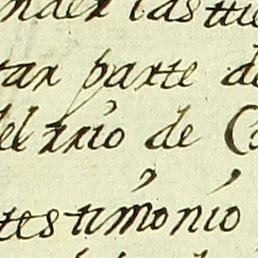 nder las tie
tar parte de
del rrio de C
testimonio